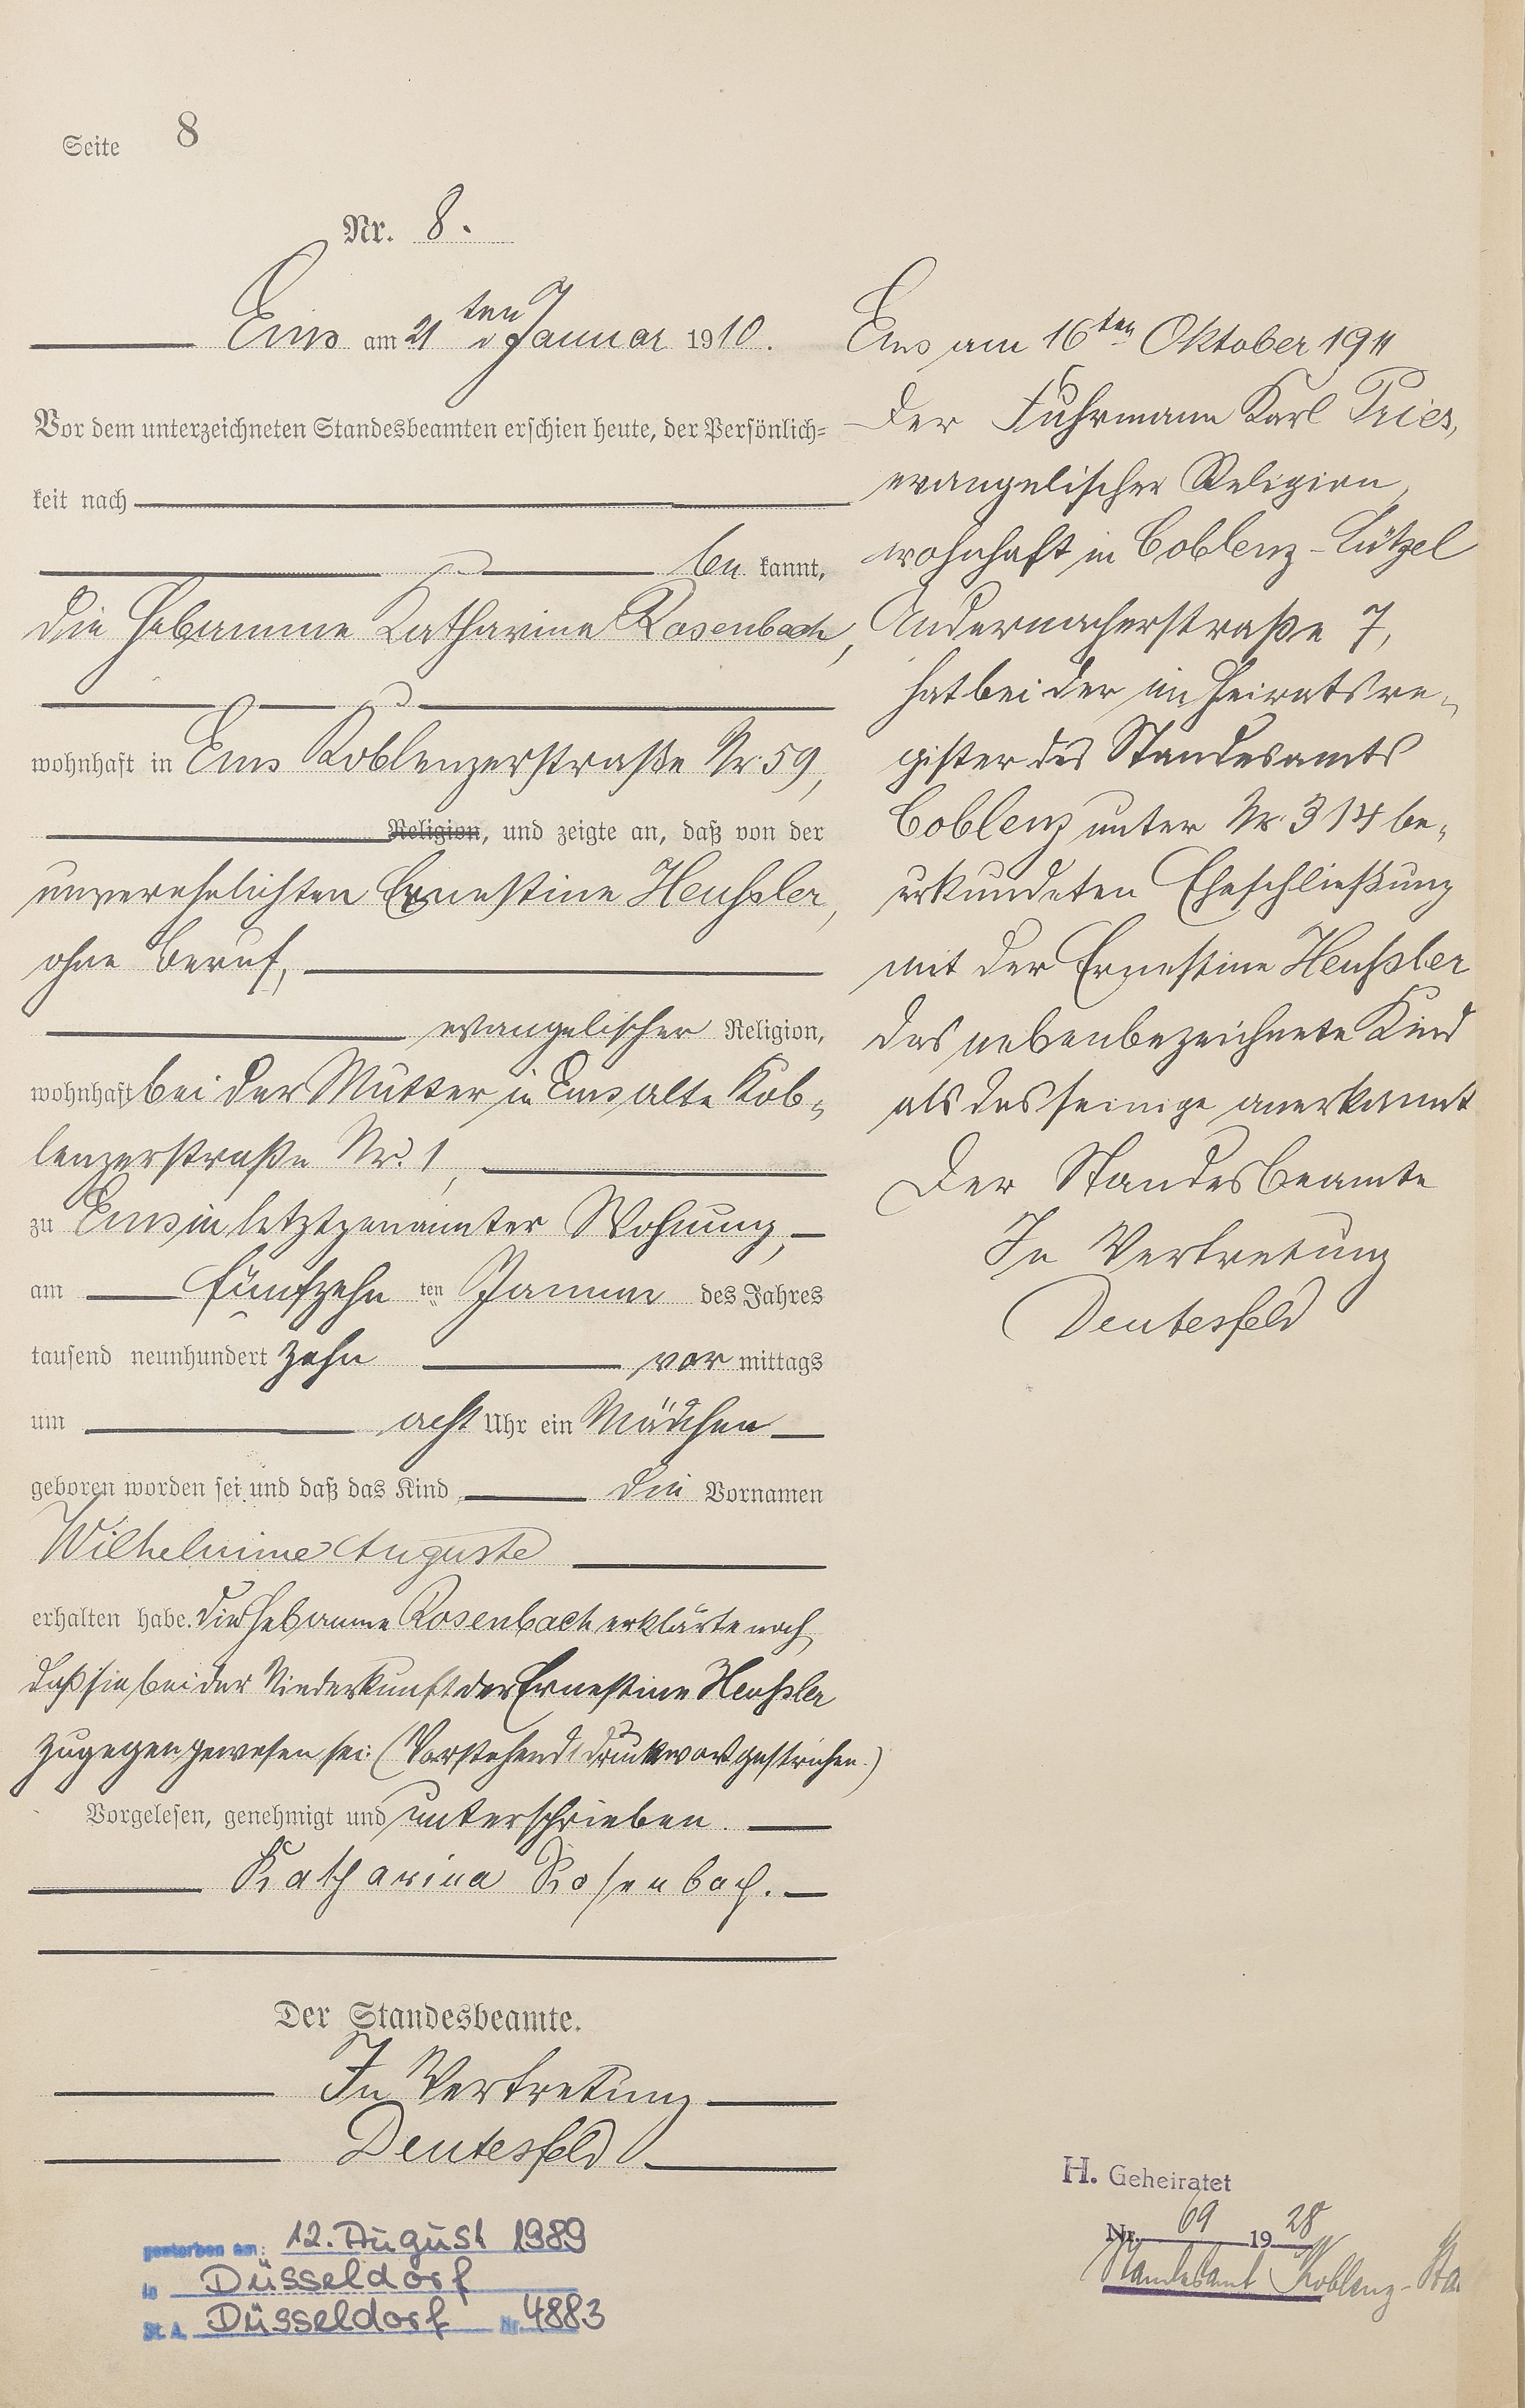 Seite 8
Nr. 8.
Ems am 21ten Januar 1910.
Vor dem unterzeichneten Standesbeamten erschien heute, der Persönlich=
keit nach
be kannt,
die Hebamme Katharina Rosenbach,
wohnhaft in Ems Koblenzerstraße Nr. 59,
Religion, und zeigte an, daß von der
unverehelichten Ernestine Heußler,
ohne Beruf,
evangelischer Religion,
wohnhaft bei der Mutter in Ems alte Kob=
lenzerstraße Nr. 1,
zu Ems in letztgenannter Wohnung,
am fünfzehn ten Januar des Jahres
tausend neunhundert zehn vor mittags
um acht Uhr ein Mädchen
geboren worden sei und daß das Kind die Vornamen
Wilhelmine Auguste
erhalten habe. Die Hebamme Rosenbach erklärte noch,
daß sie bei der Niederkunft der Ernestine Heußler
zugegen gewesen sei. (Vorstehend 1 Druckwort gestrichen.)
Vorgelesen, genehmigt und unterschrieben.
Katharina Rosenbach.
Der Standesbeamte.
In Vertretung
Deutesfeld
gestorben am: 12. August 1989
in Düsseldorf
St. A. Düsseldorf Nr. 4883
Ems am 16ten Oktober 1911
Der Fuhrmann Karl Pries,
evangelischer Religion,
wohnhaft in Coblenz-Lützel
Andernacherstraße 7,
hat bei der im Heiratsre=
gister des Standesamts
Coblenz unter Nr. 314 be=
urkundeten Eheschließung
mit der Ernestine Heußler
das nebenbezeichnete Kind
als das seinige anerkannt
Der Standesbeamte
In Vertretung
Deutesfeld
H. Geheiratet
Nr. 69 1928
Standesamt Koblenz-